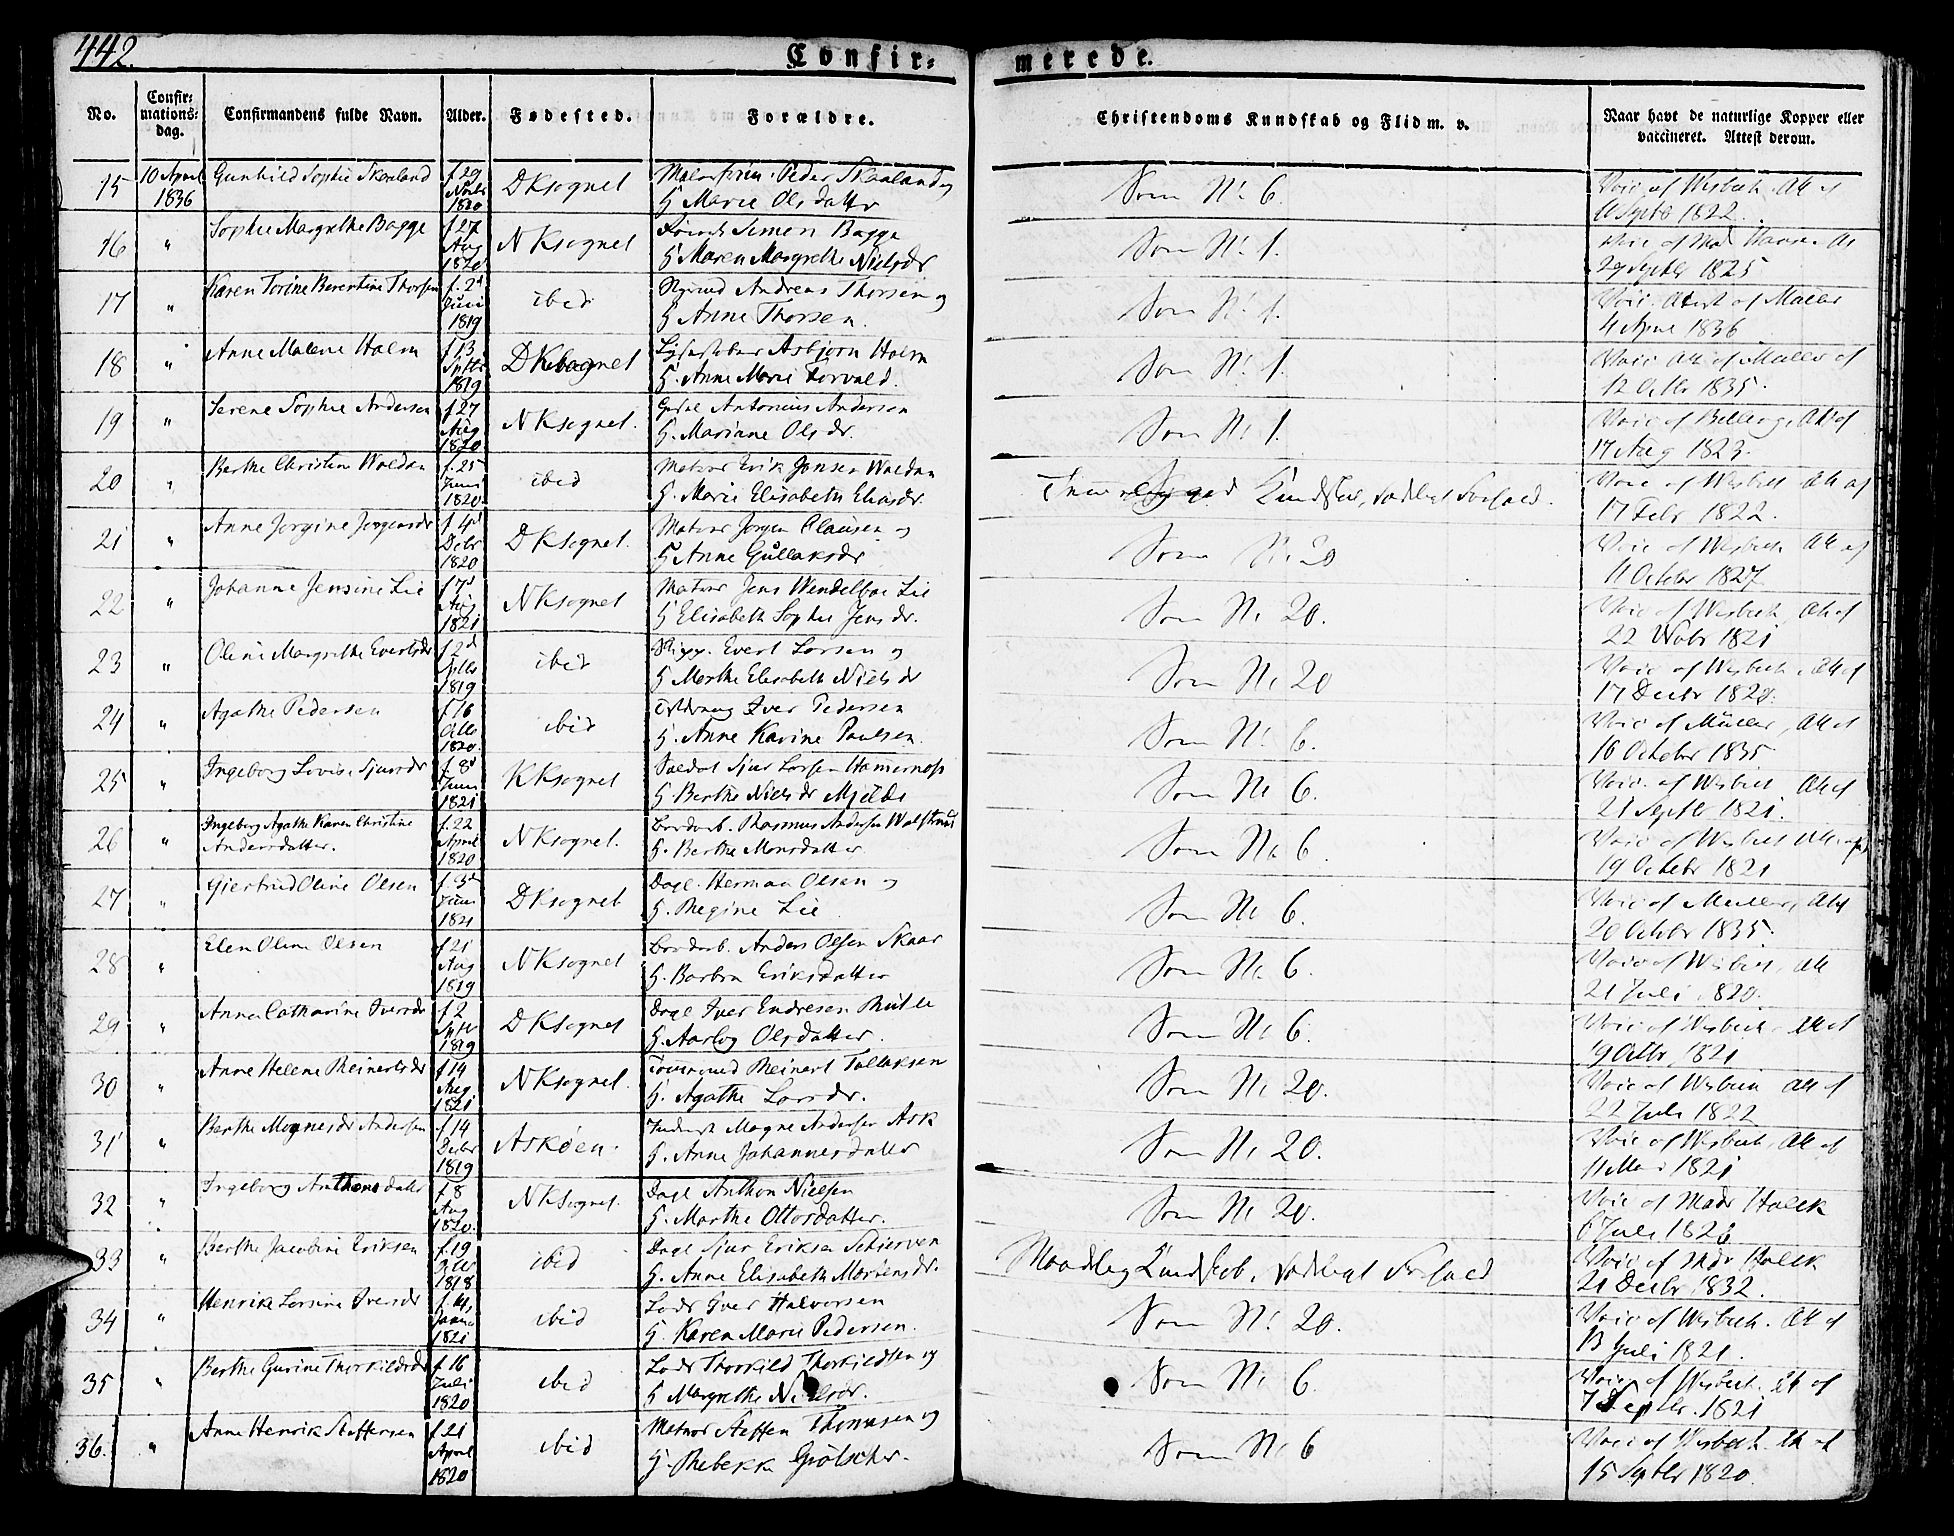 442.
Confir=
merede.
No.
Confir=
mations=
dag.
Confirmandens fulde Navn.
Alder.
Fødested.
Forældre.
Christendoms Kundskab og Flid m. v.
Naar havt de naturlige Kopper eller
vaccineret. Attest derom.
15 10 April 1836 Gunhild Sophie Skaaland f. 29 1820 DKsognet Peder Skaaland og
H Marie Olsdatter
Som No. 6.
Vacc af Wisbech Att af
11 Septb 1822.
16 " Sophie Margrethe Bagge f 27 Aug 1820 NKsognet Simon Bagge
H Maren Margrethe Nielsdr
Som No. 1.
Vacc af Mad Hansen At
29 Septbr 1825
17 " Karen Torine Berentine Thorsen f. 2d Juni 1819 ibid Andreas Thorsen og
H Anne Thorsen.
Som No. 1.
Vacc. Attest af Müller
4 1836
18 " Anne Malene Holm f 13 Septbr 1819 DKsognet Asbjørn Holm
H. Anne Marie Torvald.
Som No. 1.
Vacc Att af Müller af
12 Octbr 1835.
19 " Serene Sophie Andersen f 27 Aug 1820 NKsognet. Antonius Andersen
H. Mariane Olsdr.
Som No 1.
Vacc af Att af
17 Aug 1823.
20 " Berthe Christine Waldan f. 25 Juni 1820. ibid Matros Erik Jensen Waldan
H. Marie Elisabeth Eliasdr.
Kundskab, sædeligt Forhold.
Vacc af Wisbech Att af
17 Febr 1822.
21 " Anne Jørgine Jørgensdr f 4d Debr 1820 DKsognet. Matros Jørgen Clausen og
H Anne Gullaksdr
Som No 20
Vacc af Wisbech Att af
11 Octobr 1827
22 " Johanne Jensine Lie f 7d Aug 1821 NKsognet Matros Jens Wendelboe Lie
H Elisabeth Sophie Jensdr.
Som No 20.
Vacc af Wisbech, Att af
22 Nobr 1821
23 " Oline Margrethe Evertsdr f 2d 1819 ibid Evert Larsen og
H Marthe Elisabeth Nielsdr
Som No 20
Vacc af Wisbech. Att af
17 Decbr 1820.
24 " Agathe Pedersen f 16 Octb 1820. ibid Iver Pedersen
H. Anne Karine Paulsen.
Som No. 6.
Vacc af Müller, Att af
16 October 1835
25 " Ingeborg Lovise Sjursdr f 8d Juni 1821 KKsognet Soldat Sjur Larsen Hamernæss
H. Berthe Nielsdr Mjelde
Som No 6.
Vacc. af Wisbech Att af
21 Septbr 1821.
26 " Ingeborg Agathe Karen Christine
Andersdatter. f. 22 April 1820 NKsognet. Bordarb. Rasmus Andersen
H. Berthe Monsdatter
Som No 6.
Vacc af Wisbech Att af
19 Octobr 1821
27 " Giertrud Oline Olsen f 3d Juni 1821 DKsognet Dagl. Herman Olsen og
H. Regine Lie
Som No 6.
Vacc af Müller, Att
20 Octobr 1835.
28 " Elen Oline Olsen f 21 Aug 1819 NKsognet Bordarb. Anders Olsen Skaar
H. Barbra Eriksdatter
Som No 6.
Vacc af Wisbech, Att
21 Juli 1820.
29 " Anne Catharine Iversdr f 2 Septbr 1819 DKsognet Dagl Iver Endresen
H. Aarlog Olsdatter.
Som No 6.
Vacc af Wisbech. Att af
19 Octbr 1821
30 " Anne Helene Reinertsdr f 14 Aug 1821 NKsognet. Reinert Tollaksen
H. Agathe Larsdr.
Som No 20.
Vacc af Wisbech Att af
22 Juli 1822
31 " Berthe Magnesdr Andersen f 14 Debr 1819 Askøen. Magne Andersen Ask
H. Anne Johannesdatter
Som No 20.
Vacc af Wisbech, Att af
11 Mai 1821
32 " Ingeborg Anthonsdatter f 8 Aug 1820. NKsognet. Dagl Anthon Nielsen
H. Marthe Ottosdatter.
Som No 20.
Vacc af Madr Holck
6 Juli 1826
33 " Berthe Jacobine Eriksen f. 19 1818. ibid Dagl Sjur Eriksen
H. Anne Elisabeth Mortensdr.
Maadelig Kundskab, sædeligt Forhold
Vacc af Mdr Holck
21 Decbr 1832.
34 " Henrike Larsine Iversdr f. 14 Janua 1821 ibid Lods Iver Halvorsen
H. Karen Marie Pedersen.
Som No. 20.
Vacc af Wisbech. Att af
13 Juli 1821.
35 " Berthe Gurine Thorkildsdr f 16 Juli 1820 ibid Lods Thorkild Thorkildsen og
H Margrethe Nielsdr.
Som No 6.
Vacc. af Wisbech. Att af
7 Septbr. 1821
36. " Anne Henrik Steffensen f 21 April 1820 ibid Matros Steffen Thomasen og
H. Rebekke Grølscher.
Som No 6
Vacc af Wisbech. Att af
15 Septbr 1820.